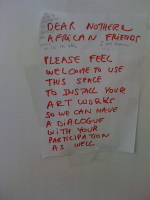 DEAR NOTHERN
AFRICAN FRIENDS
PLEASE FEEL
WELCOME TO USE
THIS SPACE
TO INSTALL YOUR
ART WORKS
SO WE CAN HAVE
A DIALOGUE
WITH YOUR
PARTICIPATION
AS WELL